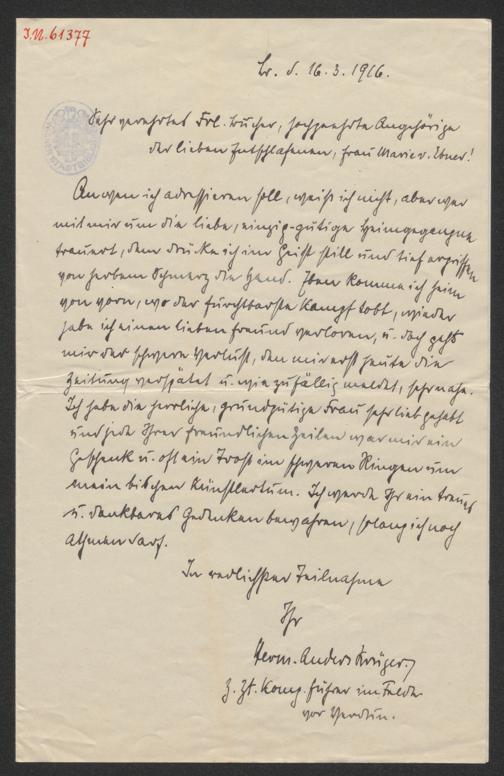 I.N. 61377
Br. d. 16.3.1916.
Sehr verehrtes Frl. Bucher, hochgeehrte Angehörige
der lieben Entschlafenen, Frau Marie v. Ebner!
An wen ich adressieren soll, weiß ich nicht, aber wer
mit mir um die liebe, einzig-gütige Heimgegangne
trauert, dem drücke ich im Geist still und tief ergriffen
von herbem Schmerz die Hand. Eben komme ich heim
von vorn, wo der furchtbarste Kampf tobt, wieder
habe ich einen lieben Freund verloren, u. doch geht
mir der schwere Verlust, den mir erst heute die
Zeitung verspätet u. wie zufällig meldet, sehr nahe.
Ich habe die herrliche, grundgütige Frau sehr lieb gehabt
und jede Ihrer freundlichen Zeilen war mir ein
Geschenk u. oft ein Trost im schweren Ringen um
mein bischen Künstlertum. Ich werde Ihr ein treues
u. dankbares Gedenken bewahren, solang ich noch
athmen darf.
In redlichster Teilnahme
Ihr
Herm. Anders Krüger,
z. Zt. Komp. führer im Felde
vor Verdun.